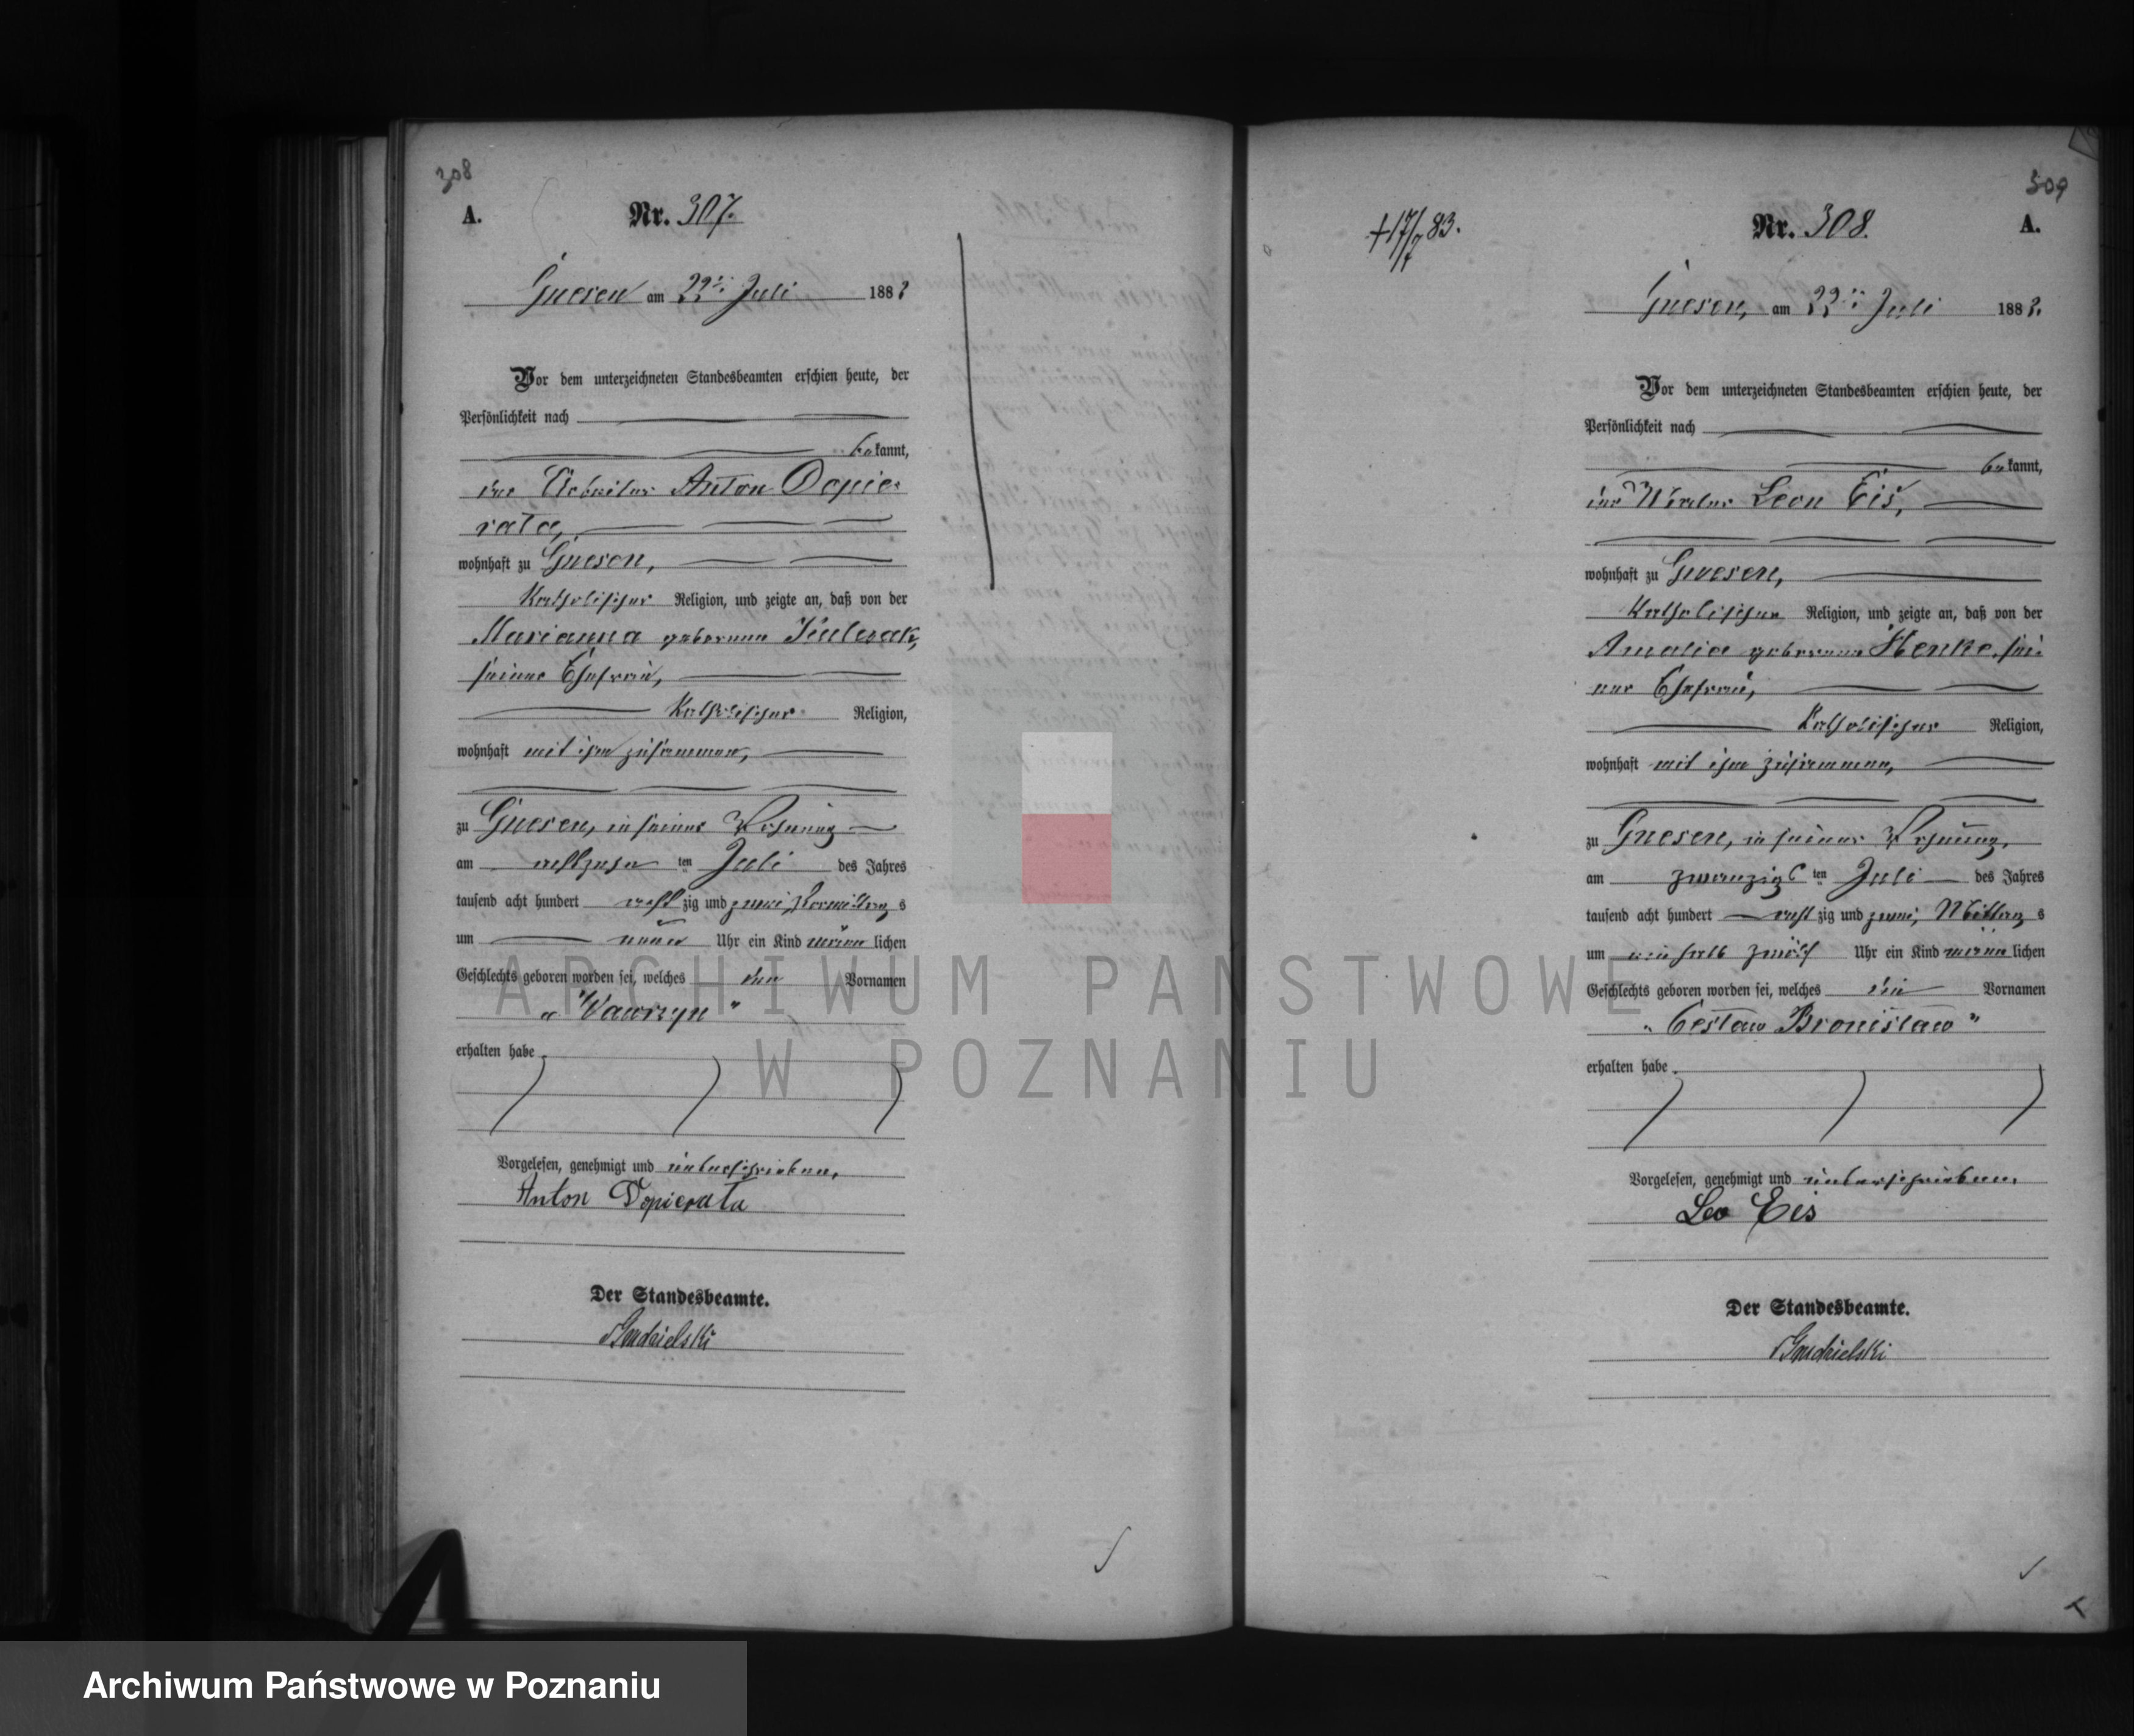 308
A.
Nr. 307.
Gnesen am 22ten Juli 1882
Vor dem unterzeichneten Standesbeamten erschien heute, der
Persönlichkeit nach
bekannt,
der Arbeiter Anton Dopie-
rata,
wohnhaft zu Gnesen,
katholischer Religion, und zeigte an, daß von der
Marianna geborenen Kulczak,
seiner Ehefrau,
katholischer Religion,
wohnhaft mit ihm zusammen,
zu Gnesen, in seiner Wohnung
am achtzehn ten Juli des Jahres
tausend acht hundert acht zig und zwei, Vormittags
um neun Uhr ein Kind männlichen
Geschlechts geboren worden sei, welches den Vornamen
„Wawrzyn"
erhalten habe.
Vorgelesen, genehmigt und unterschrieben,
Anton Dopierata
Der Standesbeamte.
+17/7 83.
309
Nr. 308.
A.
Gnesen, am 22ten Juli 1882.
Vor dem unterzeichneten Standesbeamten erschien heute, der
Persönlichkeit nach
bekannt,
der Leon Eis,
wohnhaft zu Gnesen,
katholischer Religion, und zeigte an, daß von der
Amalie geborenen Henke, sei-
ner Ehefrau,
katholischer Religion,
wohnhaft mit ihm zusammen,
zu Gnesen, in seiner Wohnung,
am zwanzigsten Juli des Jahres
tausend acht hundert acht zig und zwei, Mittags
um ein halb zwölf Uhr ein Kind männlichen
Geschlechts geboren worden sei, welches die Vornamen
„Ceslaw Bronislaw"
erhalten habe.
Vorgelesen, genehmigt und unterschrieben.
Leo Eis
Der Standesbeamte.
ARCHIWUM PAŃSTWOWE
W POZNANIU
Archiwum Państwowe w Poznaniu